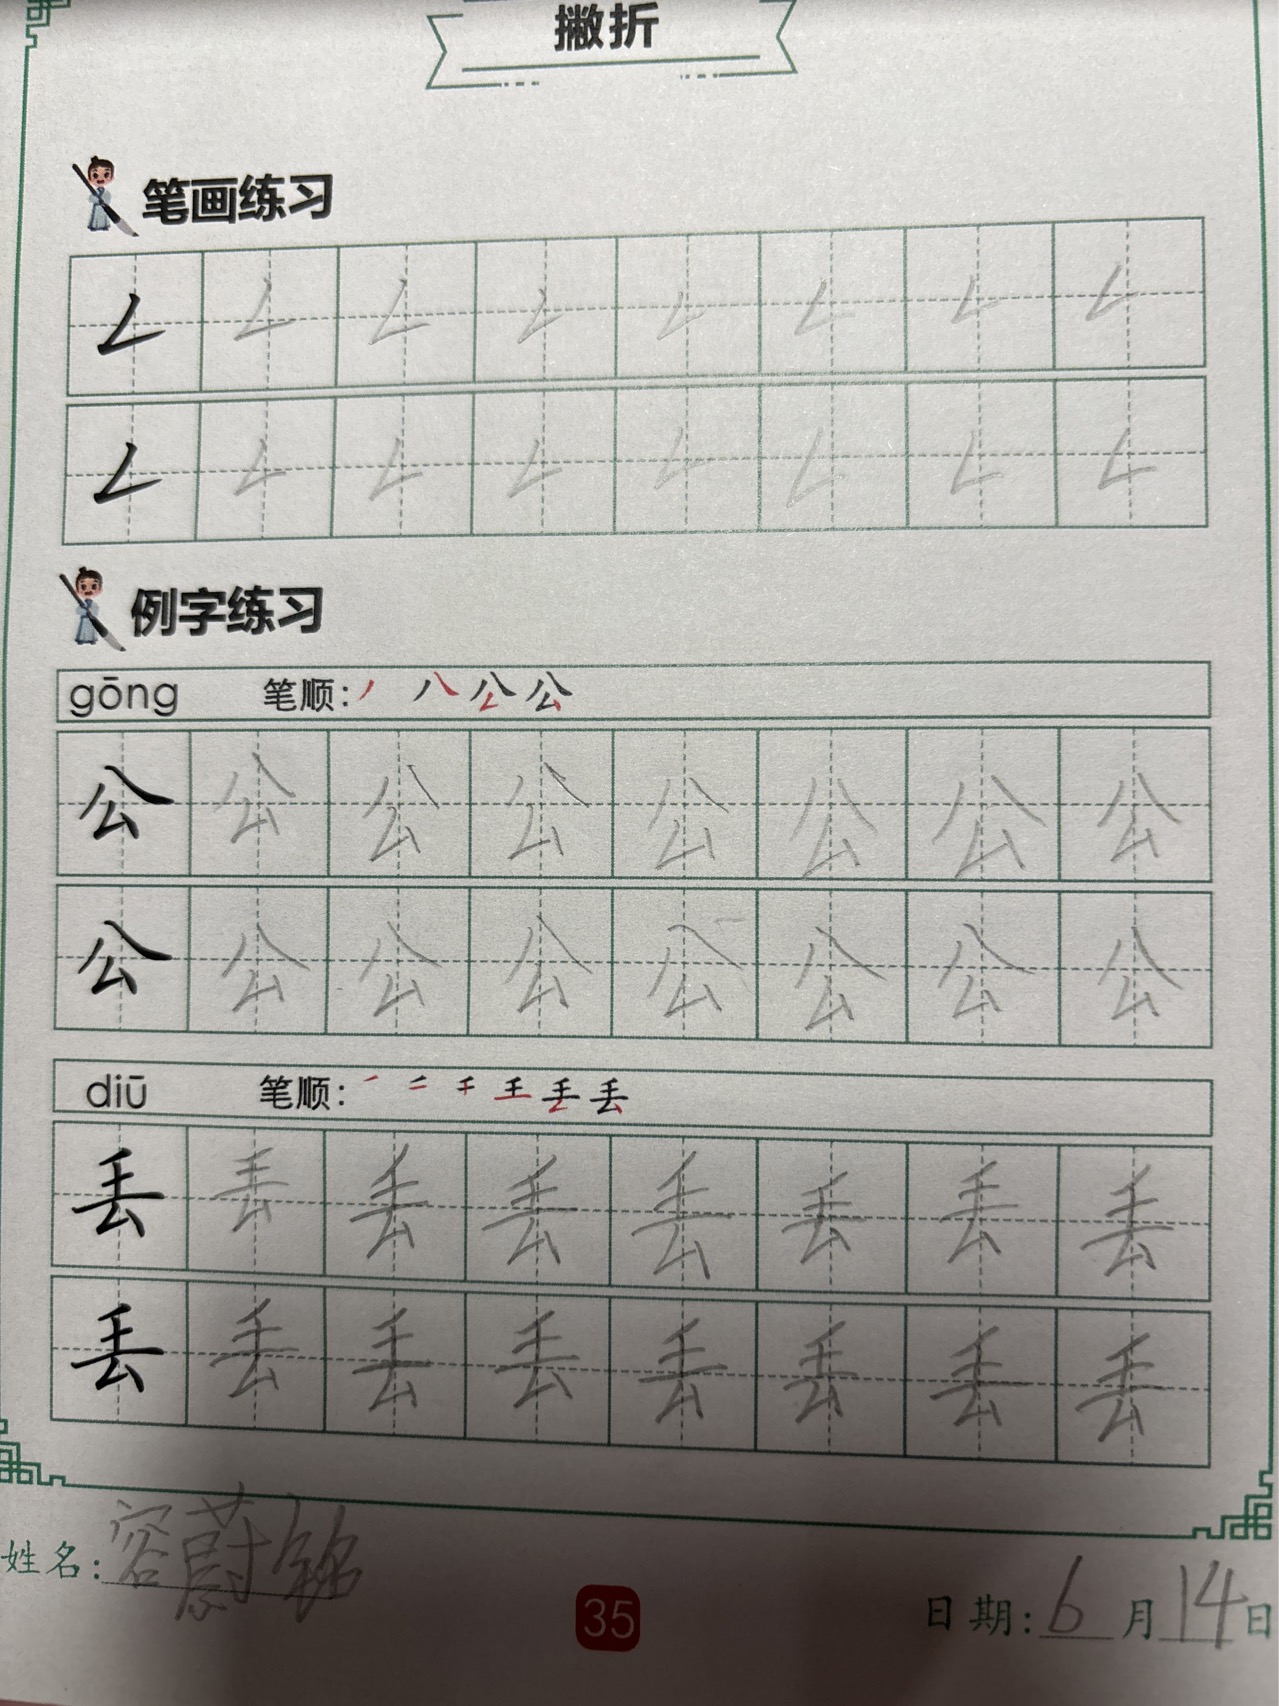 撇折
笔画练习
𠃋 𠃋 𠃋 𠃋 𠃋 𠃋 𠃋 𠃋
𠃋 𠃋 𠃋 𠃋 𠃋 𠃋 𠃋 𠃋
例字练习
gōng 笔顺: 丿 八 公 公
公 公 公 公 公 公 公 公
公 公 公 公 公 公 公 公
diū 笔顺: 丢 丢
丢 丢 丢 丢 丢 丢 丢 丢
丢 丢 丢 丢 丢 丢 丢 丢
姓名: 容蔚铭
35
日期: 6 月 14 日